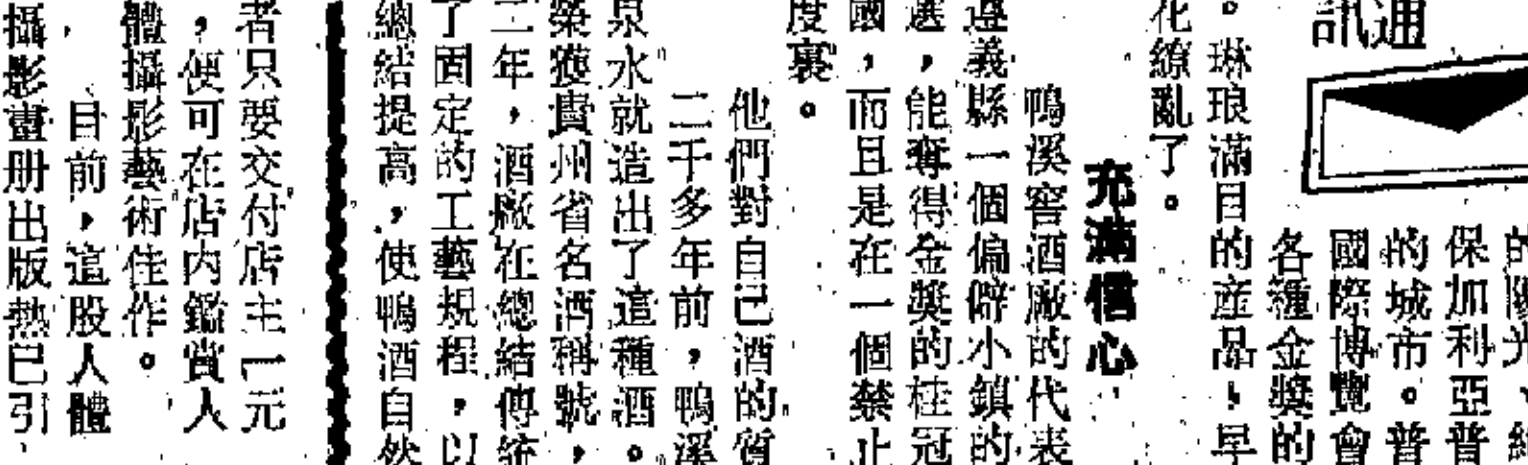 通訊
陽光、
保加利亞普
的城市。普
國際博覽會
各種金獎的
。琳琅滿目的産品，早
花繚亂了。
充滿信心
鴨溪窖酒廠的代表
遵義縣一個偏僻小鎮的
選，能奪得金獎的桂冠
國，而且是在一個禁止
度裏。
他們對自己酒的質
二千多年前，鴨溪
泉水就造出了這種酒。
榮獲貴州省名酒稱號，
年，酒廠在總結傳統
了固定的工藝規程，以
總結提高，使鴨酒自然
者只要交付店主一元
，便可在店内鑑賞人
體攝影藝術佳作。
目前，這股人體
攝影畫册出版熱已引